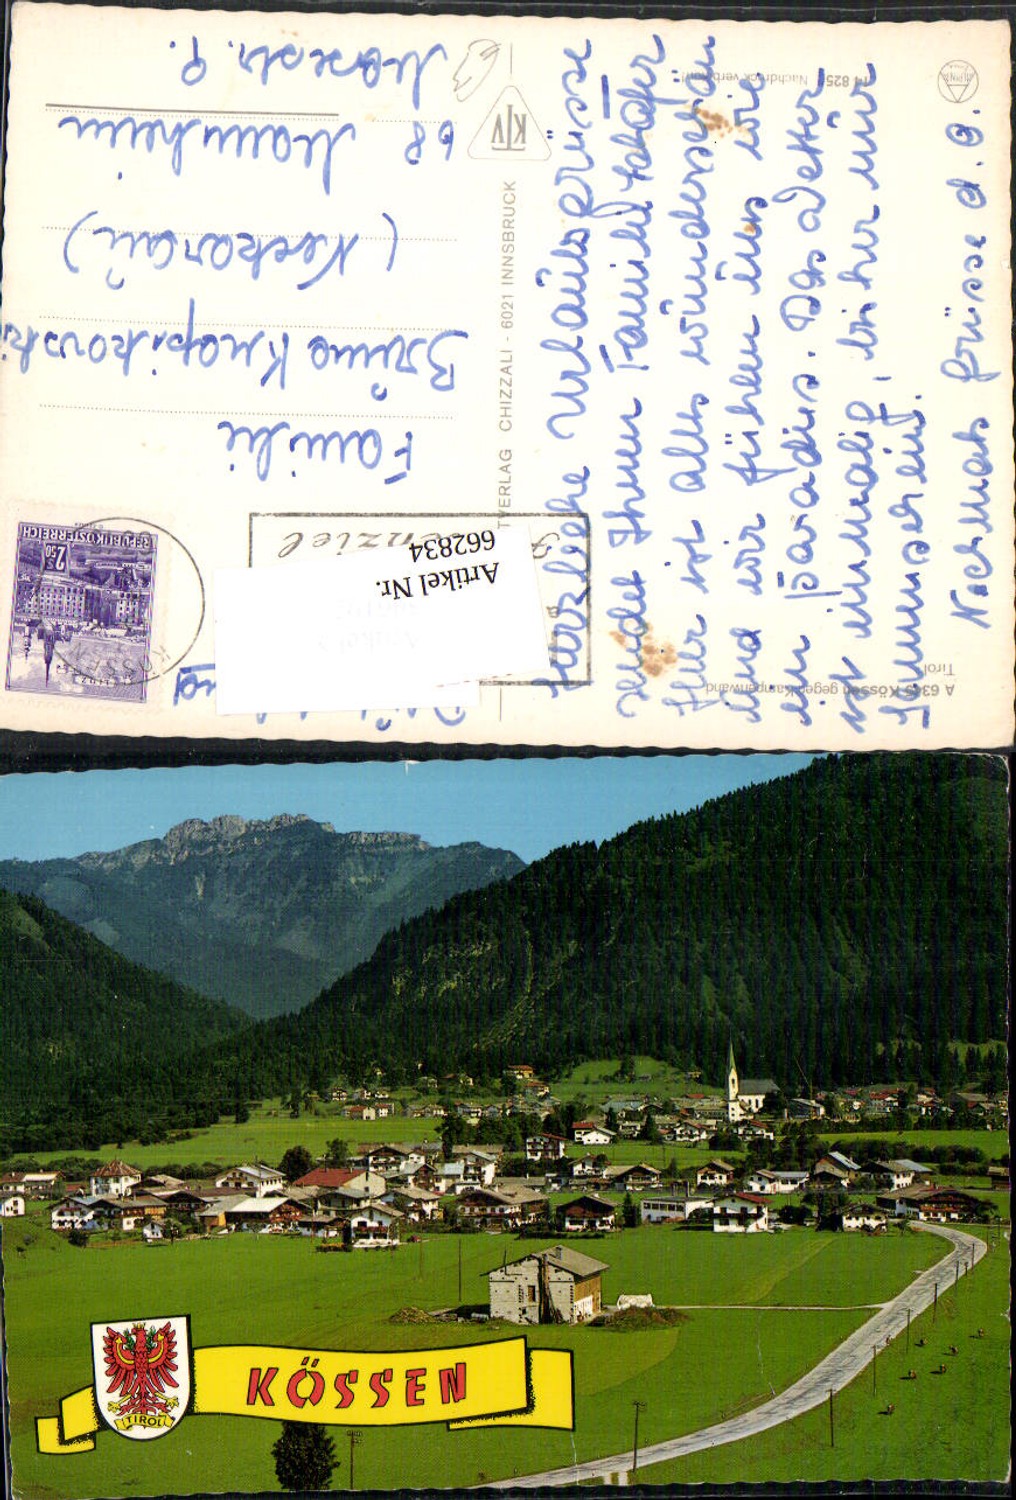 Herzliche Urlaubsgrüsse
sendet Ihnen Familie Schäfer
Hier ist alles wunderschön
und wir fühlen uns wie
im Paradies. Das Wetter
ist einmalig, bisher nur
Sonnenschein.
Nochmals Grüsse d. O.
A 6345 Kössen gegen Kampenwand
Tirol
Nachdruck verboten!
VERLAG CHIZZALI - 6021 INNSBRUCK
KTV
REPUBLIK ÖSTERREICH
S 2.50
LINZ
KÖSSEN
Artikel Nr.
662834
Familie
Bruno Knapikowski
(Neckarau)
68 Mannheim
Moselstr. 9.
KÖSSEN
TIROL